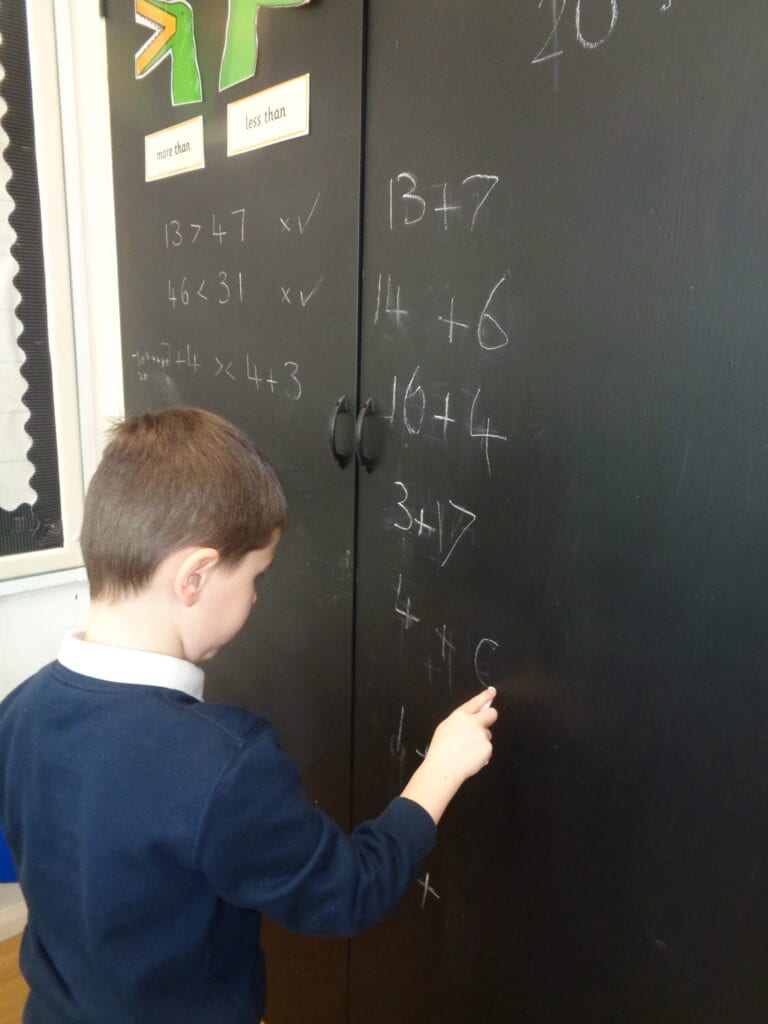 more than
less than
20
13 > 47 × ✓
46 < 31 × ✓
7+4 >< 4+3
13+7
14 +6
16+4
3+17
4
+1 6
+
+